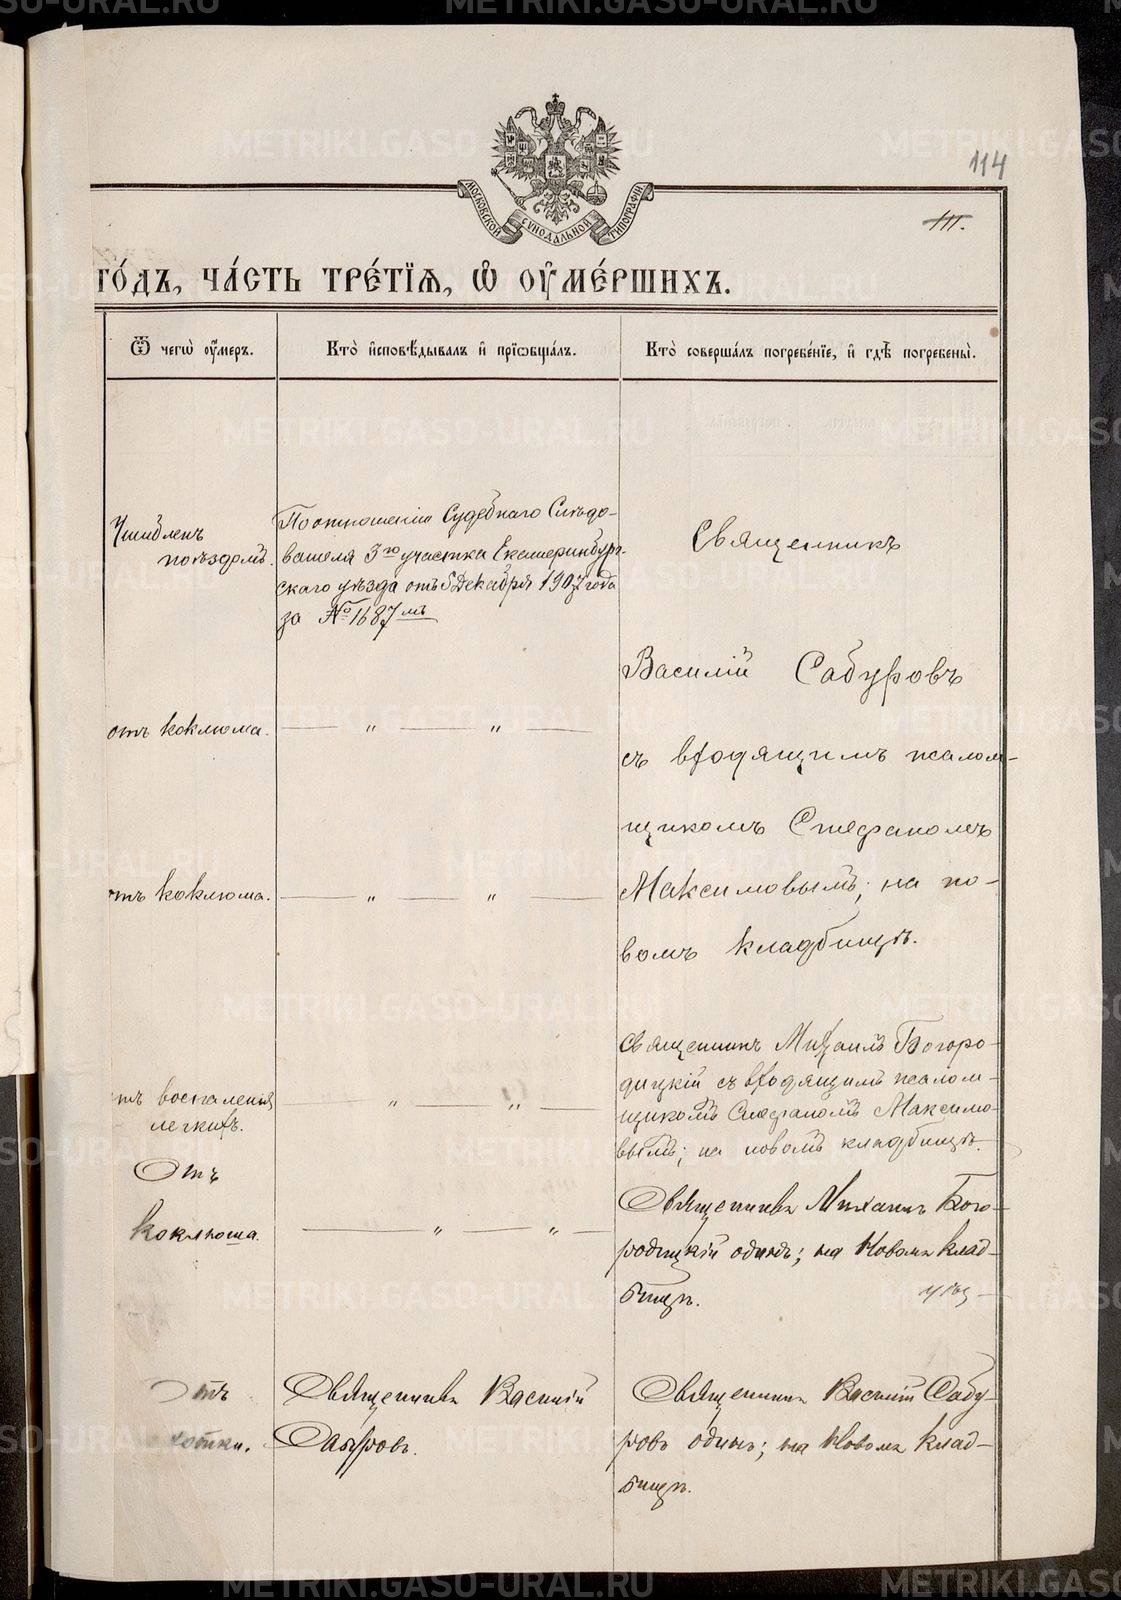 114
111.
МОСКОВСКОЙ СУНОДАЛЬНОЙ ТИПОГРАФІИ
ГО́ДЪ, ЧА́СТЬ ТРЕ́ТІѦ, Ѡ҆ ОУ҆МЕ́РШИХЪ.
Ѿ чегѡ̀ оу҆́меръ.
Кто̀ и҆сповѣ́дывалъ и҆ прїѡбща́лъ.
Кто̀ соверша́лъ погребе́нїе, и҆ гдѣ̀ погребены̀.
Ушибленъ
поѣздомъ.
По отношенію Судебнаго Слѣдо-
вателя 3го участка Екатеринбург-
скаго уѣзда отъ 5 Декабря 1907 года
за № 1687мъ
Священникъ
Василій Сабуровъ
съ входящимъ псалом-
щикомъ Стефаномъ
Максимовымъ; на но-
вомъ кладбищѣ.
отъ коклюша.
— " — " —
отъ коклюша.
— " — " —
отъ воспаленія
легкихъ.
— " — " —
Священникъ Михаилъ Богоро-
дицкій съ входящимъ псалом-
щикомъ Стефаномъ Максимо-
вымъ; на новомъ кладбищѣ.
Отъ
коклюша.
— " — " —
Священникъ Михаилъ Бого-
родицкій одинъ; на Новомъ клад-
бищѣ.
Отъ
Священникъ Василій
Сабуровъ.
Священникъ Василій Сабу-
ровъ одинъ; на Новомъ клад-
бищѣ.
METRIKI.GASO-URAL.RU